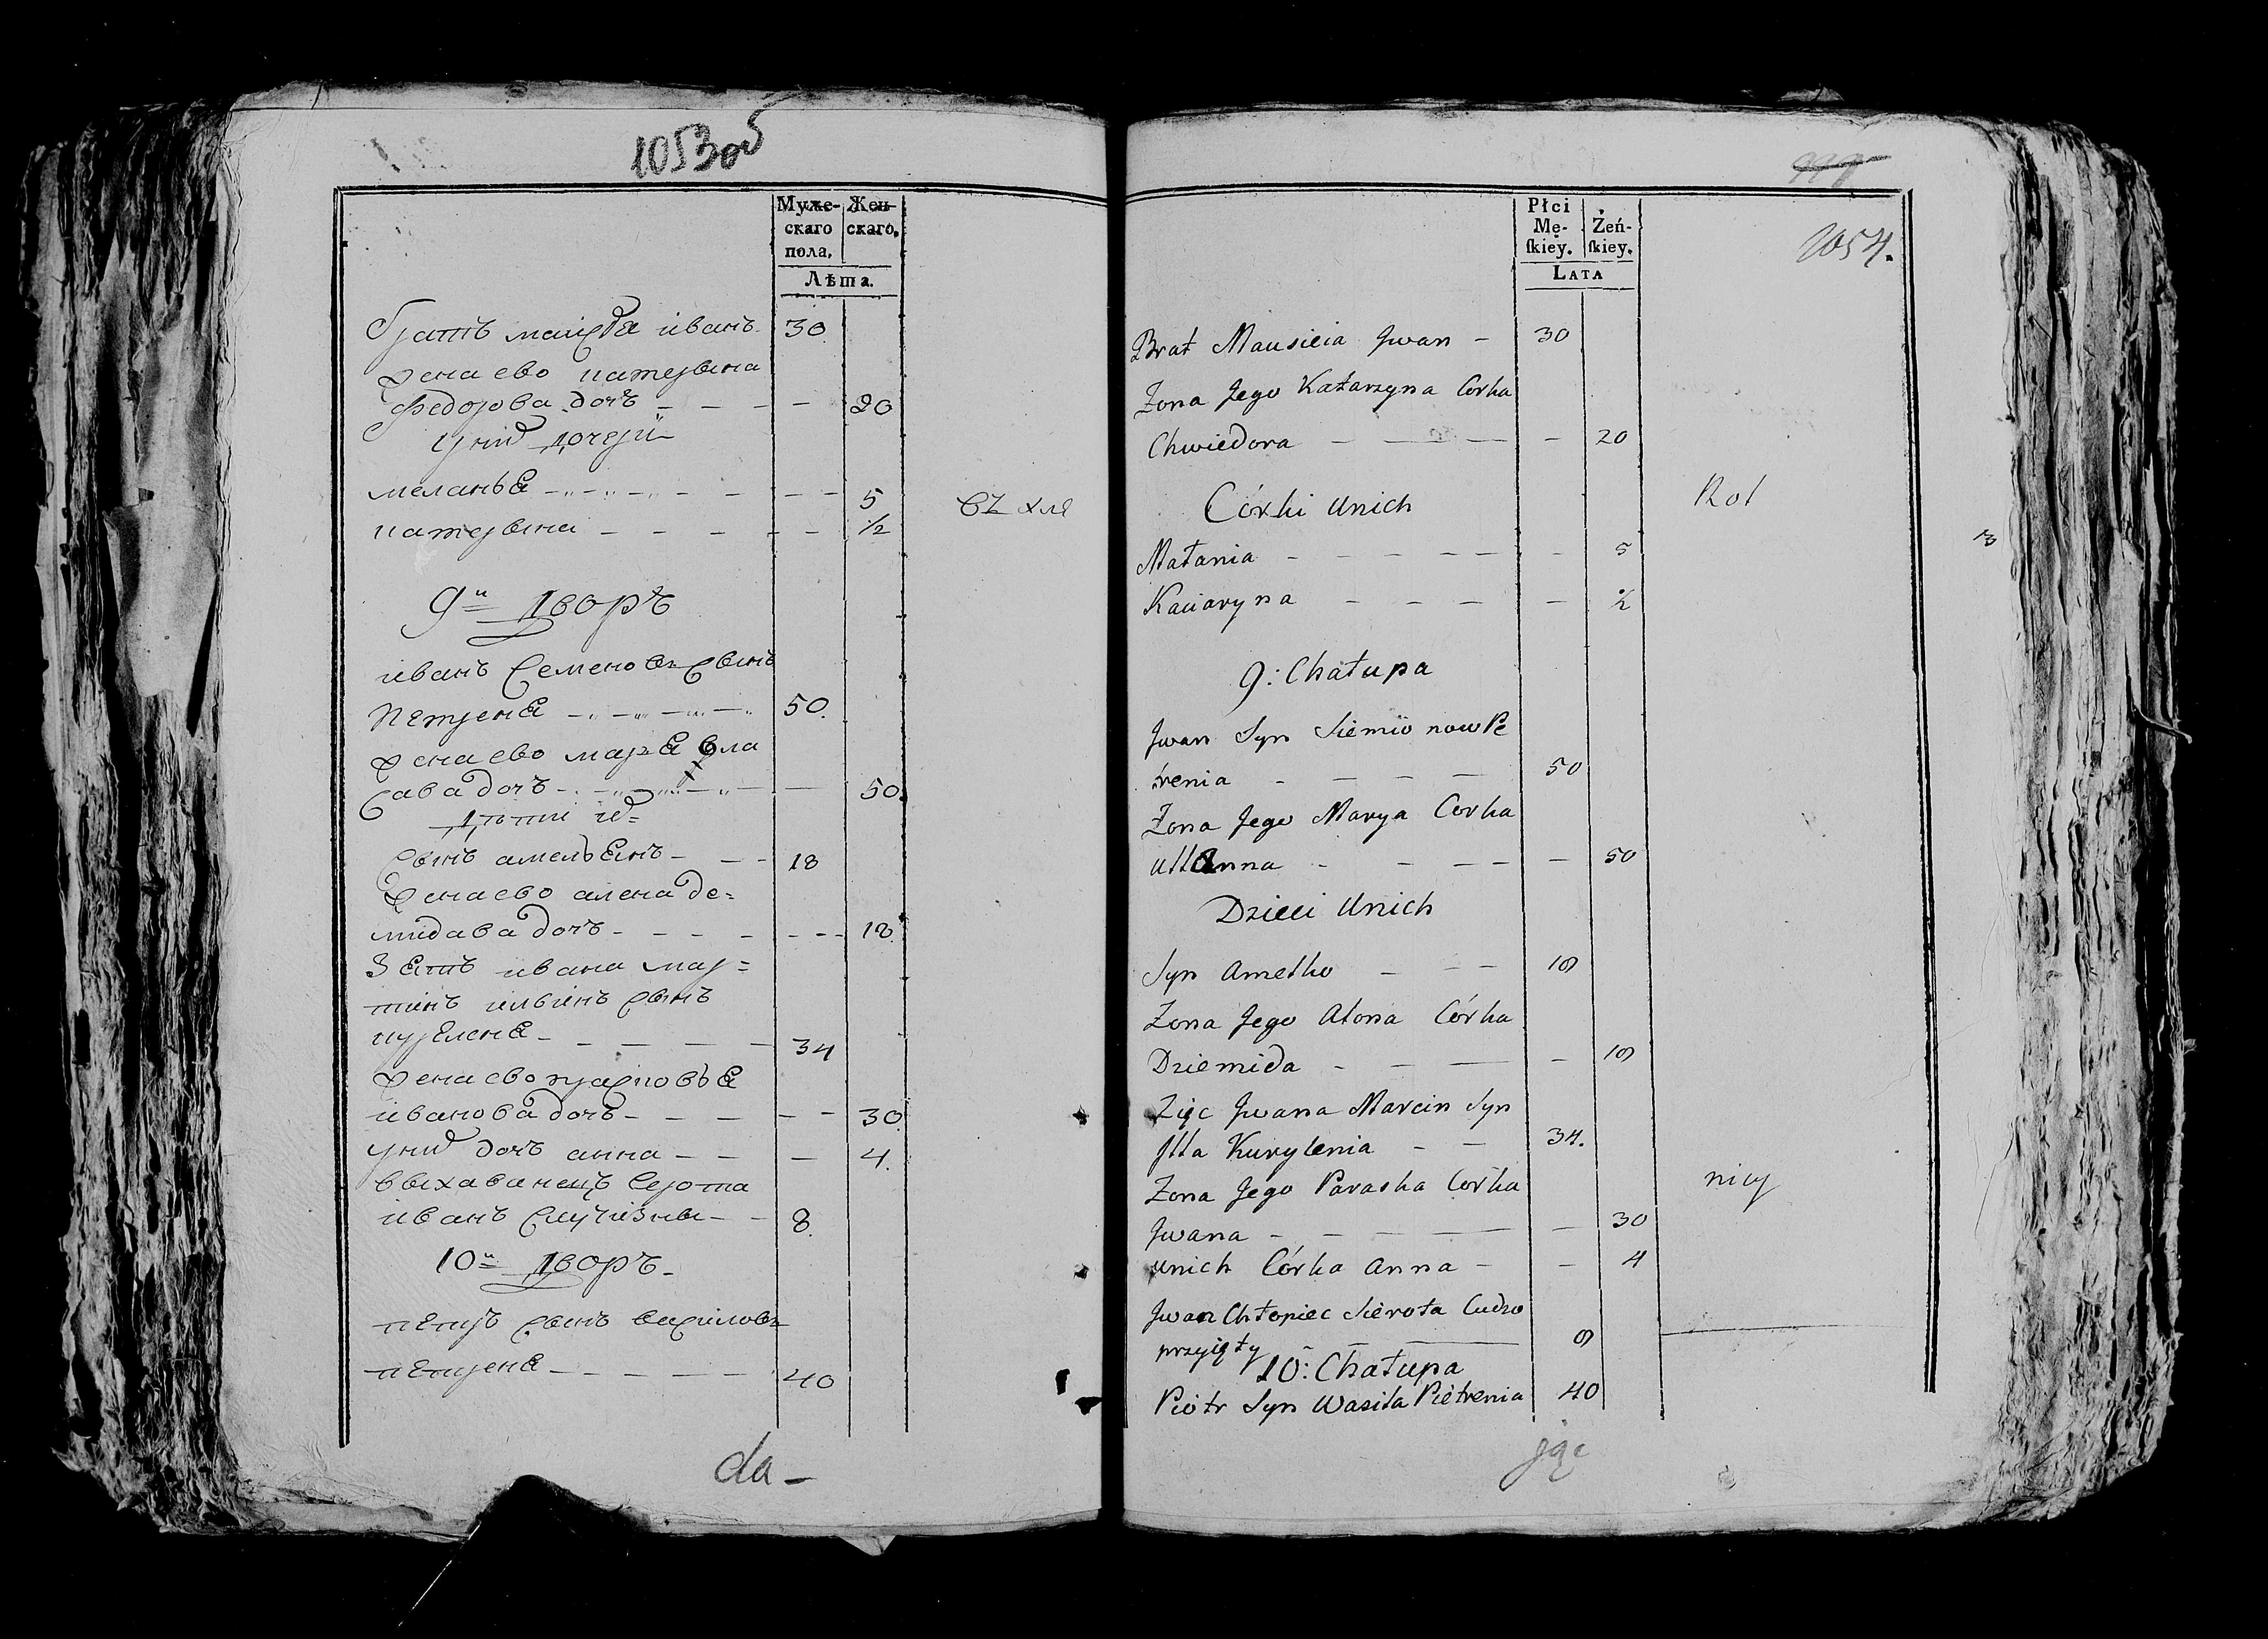 1053об
Муже-
скаго
пола.
Жен-
скаго.
Лѣта.
братъ иванъ 30
жена ево катерына
федорова дочь 20
у них дочери
меланья 5
катерына 1/2
въ хле
9й дворъ
иванъ семеновъ сынъ
петреня 50.
жена ево маря вла
сава дочь 50.
дѣти их
сынъ амельянъ 18
жена ево алена де=
мидава дочь 18.
Зять ивана мар=
тинъ ильинъ сынъ
куреленя 34
жена ево прасковья
иванова дочь 30.
у них дочь анна 4.
выхаванецъ серота
иванъ 8.
10й дворъ
петръ сынъ василовъ
петреня 40
da -
1054.
Płci
Mę-
ſkiey.
Żeń-
ſkiey.
LATA
Brat Mausieia Jwan 30
Zona Jego Katarzyna Corka
Chwiedora 20
Córki unich
Małania 5
Kaciaryna 1/2
Rol
9: Chałupa
Jwan Syn Siemionow Pe
trenia 50
Zona Jego Marya Corka
50
Dzieci Unich
Syn Amelko 18
Zona Jego Alona Córka
Dziemida 18
Zięc Jwana Marcin Syn
Jlla Kurylenia 34.
Zona Jego Paraska Corka
Jwana 30
unich Córka Anna 4
nicy
Jwan Chłopiec Sierota Cudzo
przyięty 8
10: Chałupa
Piotr Syn Wasila Pietrenia 40
jąc